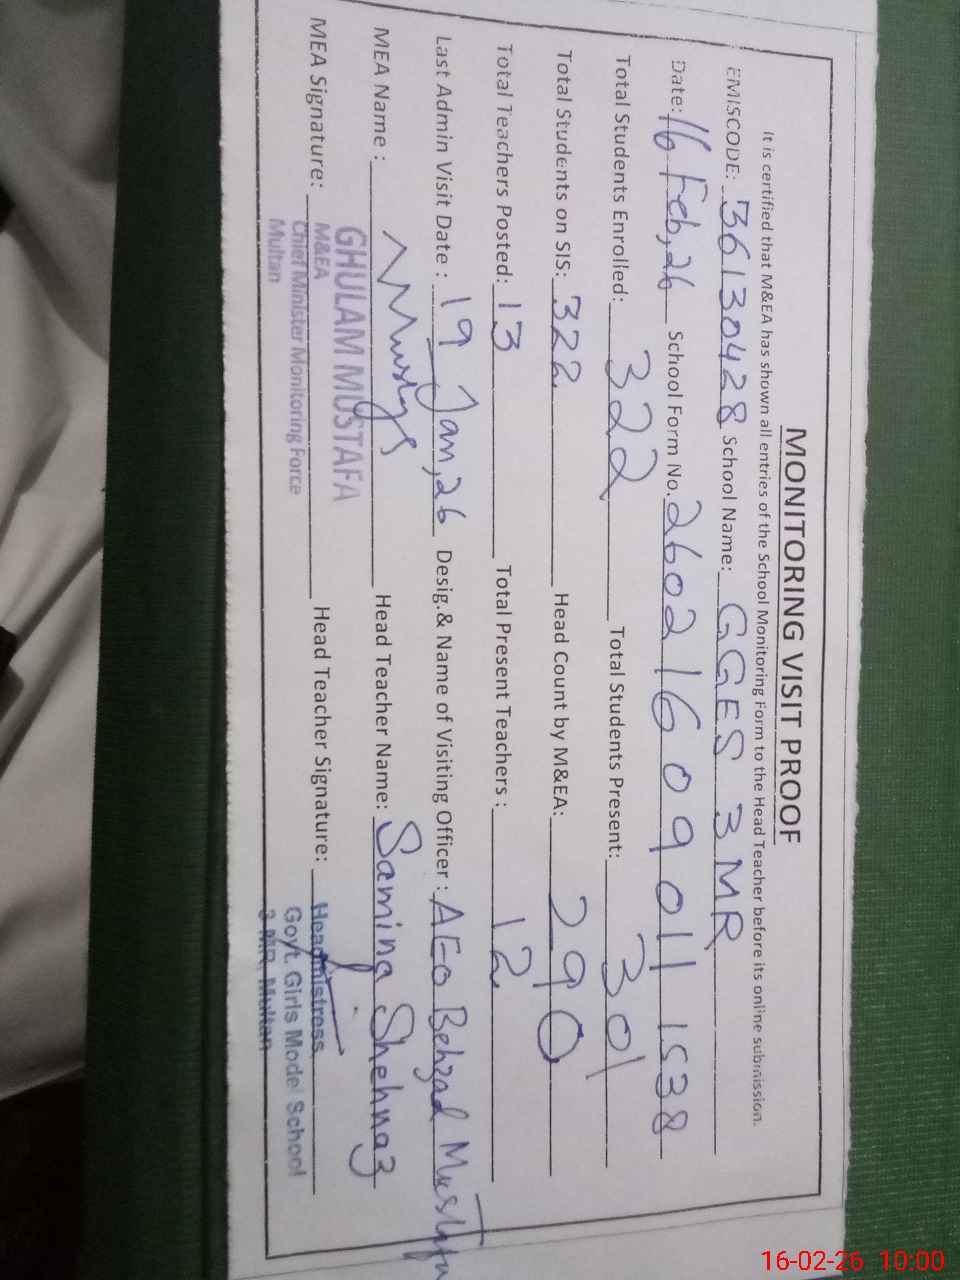 MONITORING VISIT PROOF
It is certified that M&EA has shown all entries of the School Monitoring Form to the Head Teacher before its online submission.
EMISCODE: 36130428 School Name: GGES 3 MR
Date: 16 Feb, 26 School Form No. 2602160901 1538
Total Students Enrolled: 322 Total Students Present: 301
Total Students on SIS: 322 Head Count by M&EA: 290
Total Teachers Posted: 13 Total Present Teachers : 12
Last Admin Visit Date : 19 Jan, 26 Desig.& Name of Visiting Officer : AEO Behzad
MEA Name : Head Teacher Name: Samina Shehnaz
MEA Signature: Head Teacher Signature:
GHULAM MUSTAFA
M&EA
Chief Minister Monitoring Force
Multan
Headmistress
Govt. Girls Model School
3-MR, Multan
16-02-26 10:00